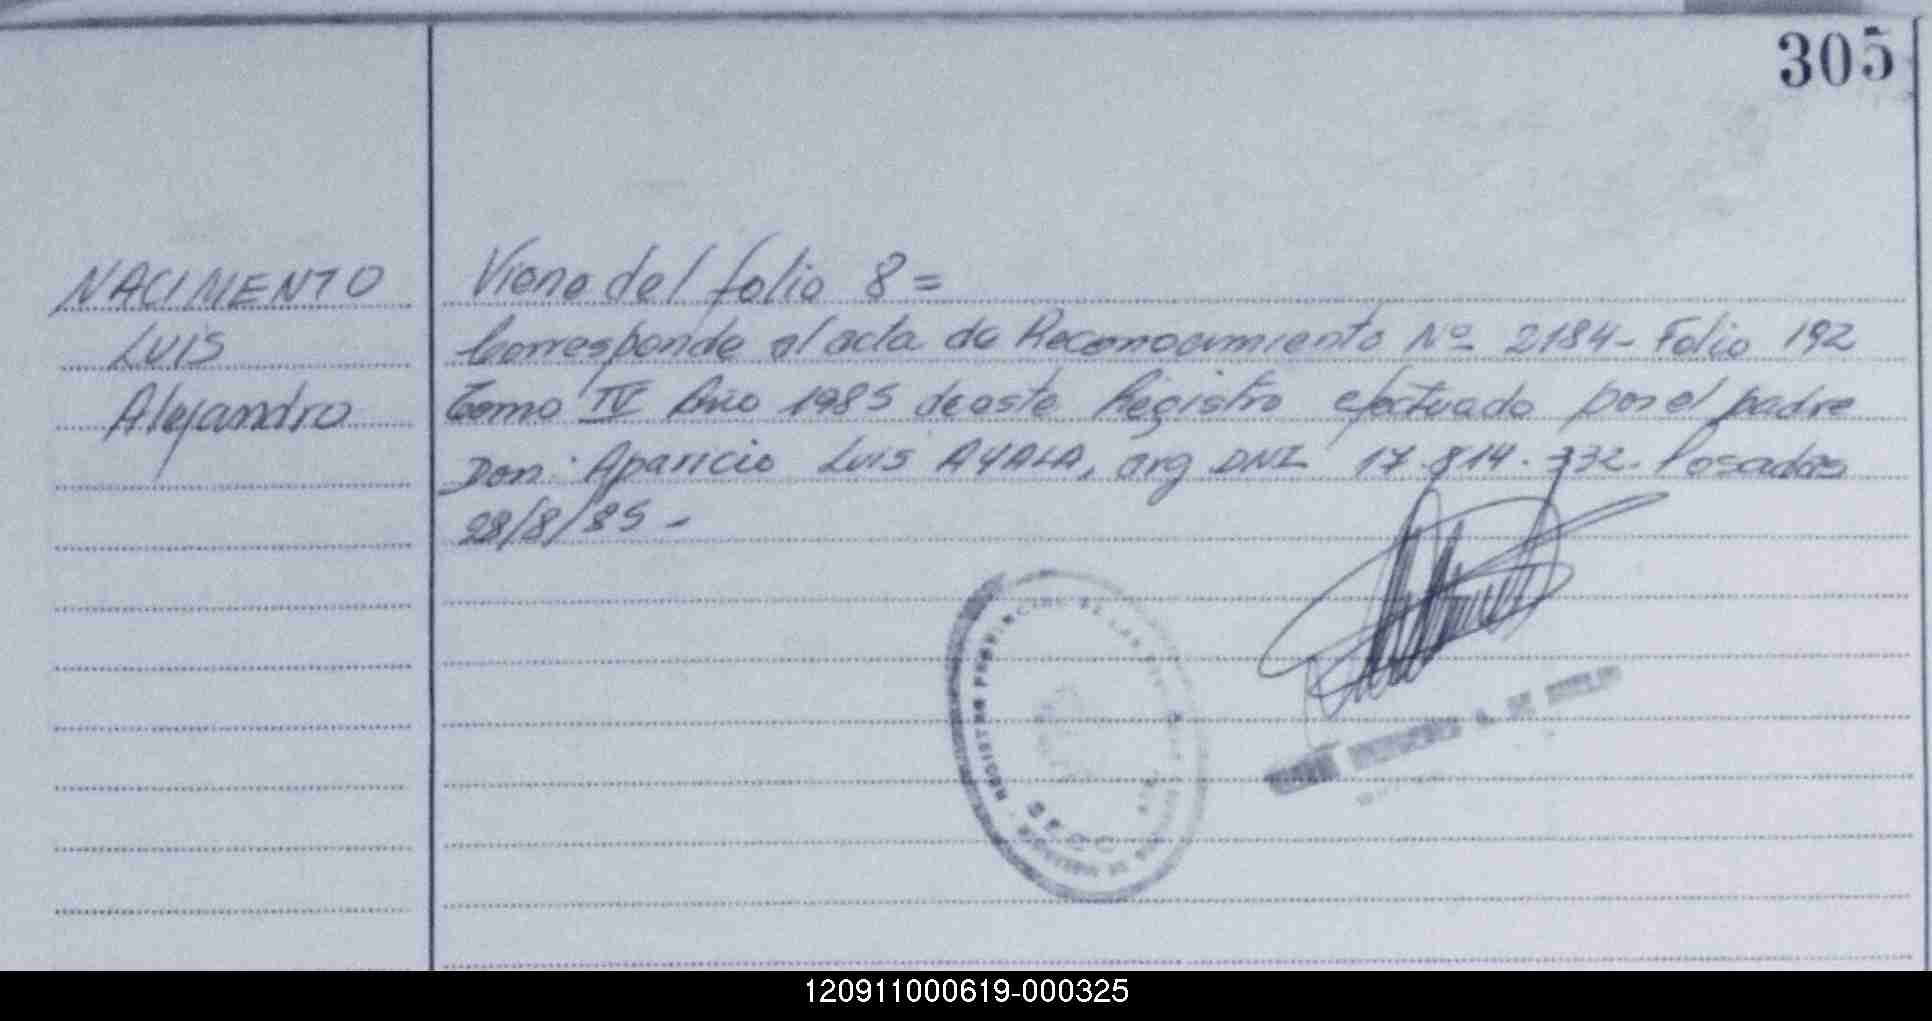 305
NACIMENTO
LUIS
Alejandro
Viene del folio 8=
Corresponde al acta de Reconocimiento Nº 2184- Folio 192
Tomo IV Año 1985 de este Registro efectuado por el padre
Don: Aparicio Luis AYALA, arg DNI 17.814.332. Posadas
28/8/85-
REGISTRO PROVINCIAL DE LAS
120911000619-000325